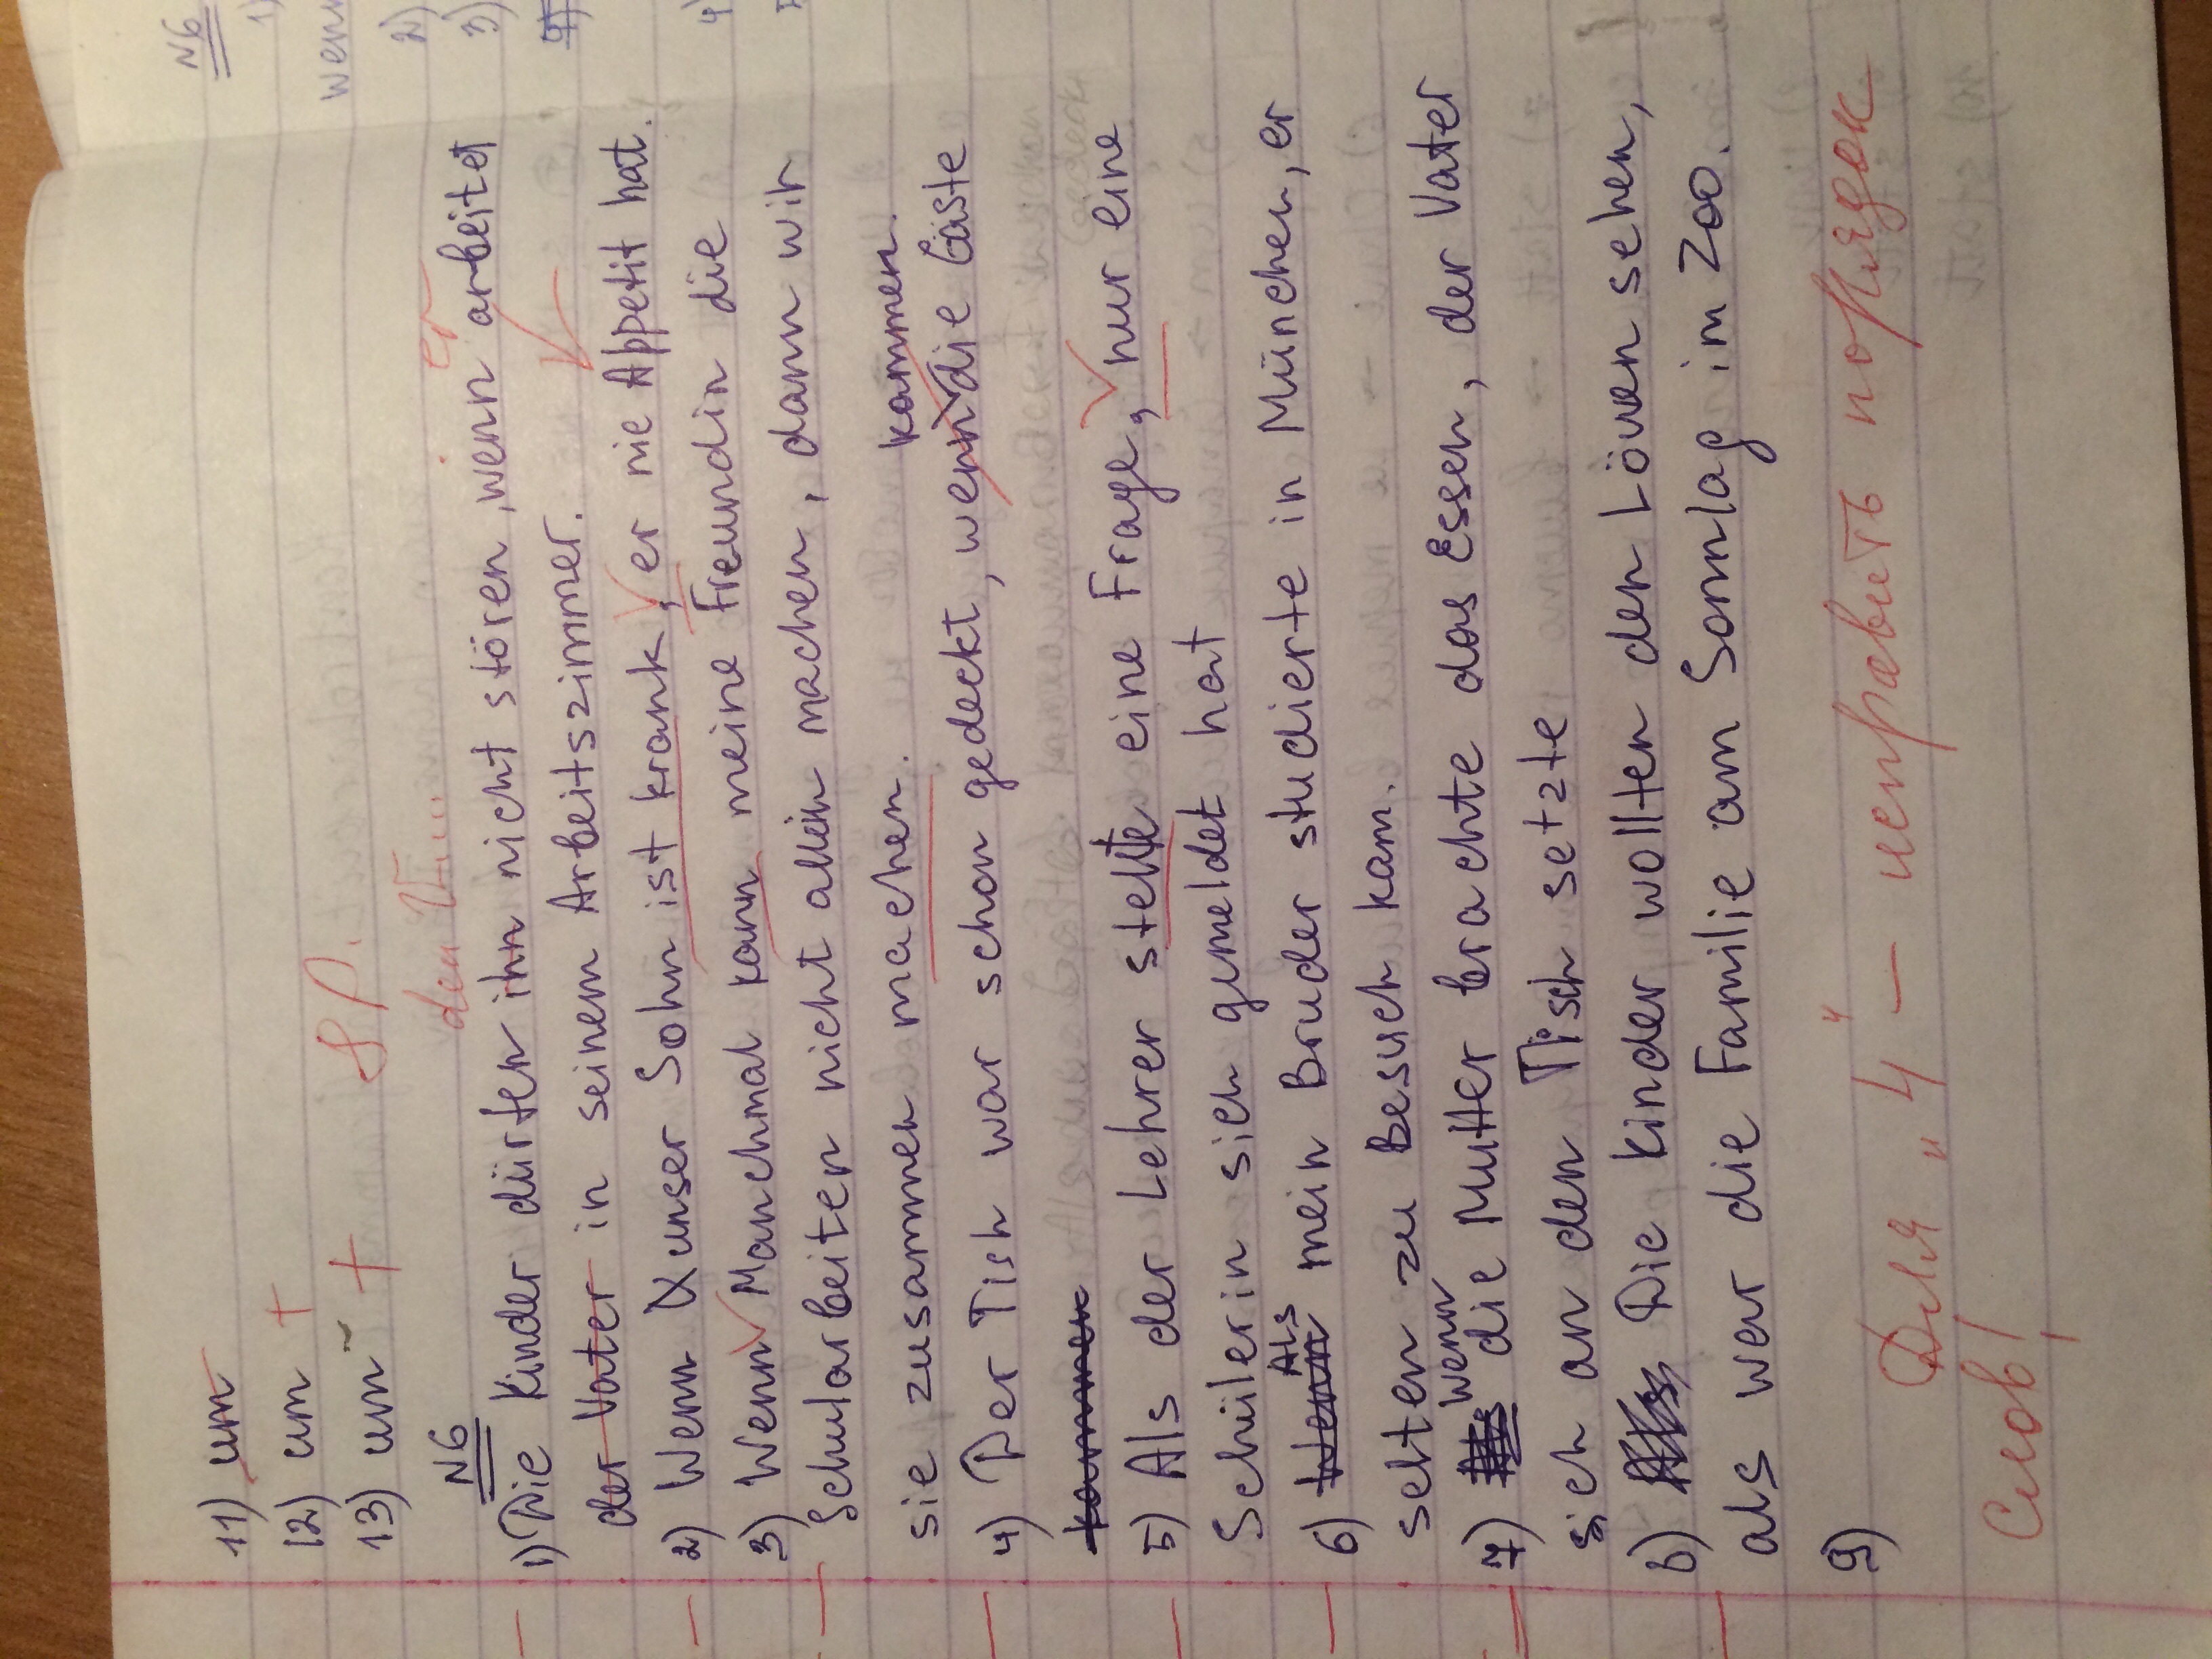 11) um
12) um +
13) um + S.P.
N6 dem V...... er
1) Die Kinder dürfen ihn nicht stören, wenn arbeitet
der Vater in seinem Arbeitszimmer.
2) Wenn unser Sohn ist krank, er nie Appetit hat.
3) Wenn Manchmal kann meine Freundin die
Schularbeiten nicht allein machen, dann wir
sie zusammen machen. kommen.
4) Der Tish war schon gedeckt, wenn die Gäste
kommen
5) Als der Lehrer stellte eine Frage, nur eine
Schülerin sich gemeldet hat
6) Wenn Als mein Bruder studierte in München, er
selten zu Besuch kam.
7) Wenn die Mutter brachte das Essen, der Vater
sich an den Tisch setzte
8) Die Kinder wollten den Löven sehen,
als war die Familie am Sonntag im Zoo.
9)
Для "4" – исправить порядок
слов!
N6
1)
wenn
2)
3)
4)
4)